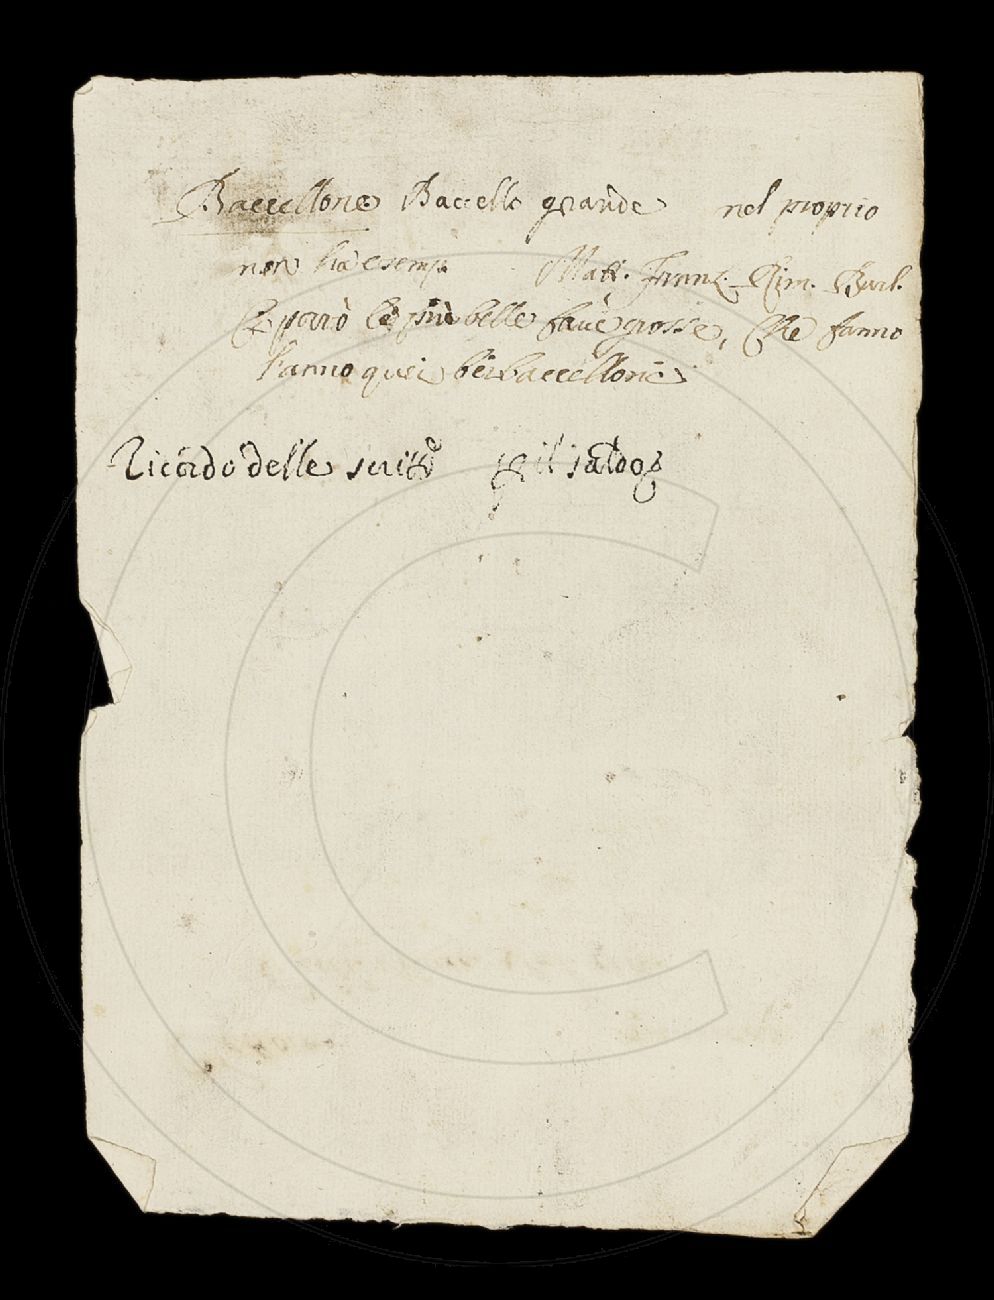 Baccellone Baccello grande nel proprio
non ha esemp. Matt. Franz. Rim. Burl.
E però le più belle fave grosse, Che fanno
l'anno quei bei baccelloni
delle il